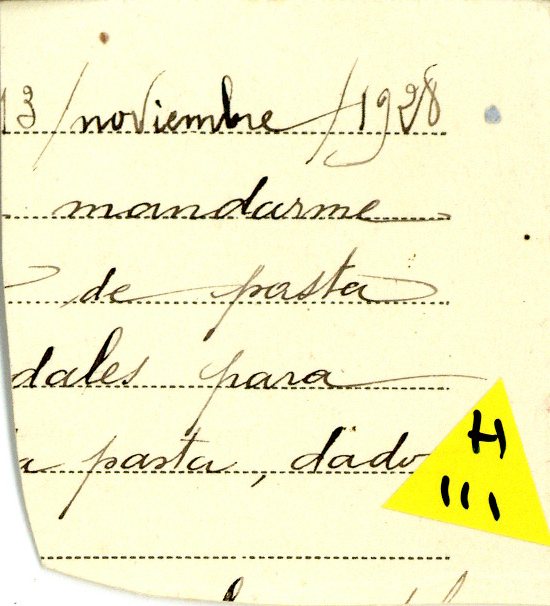 13/noviembre/1928
mandarme
de pasta
dales para
a pasta, dado
H
III